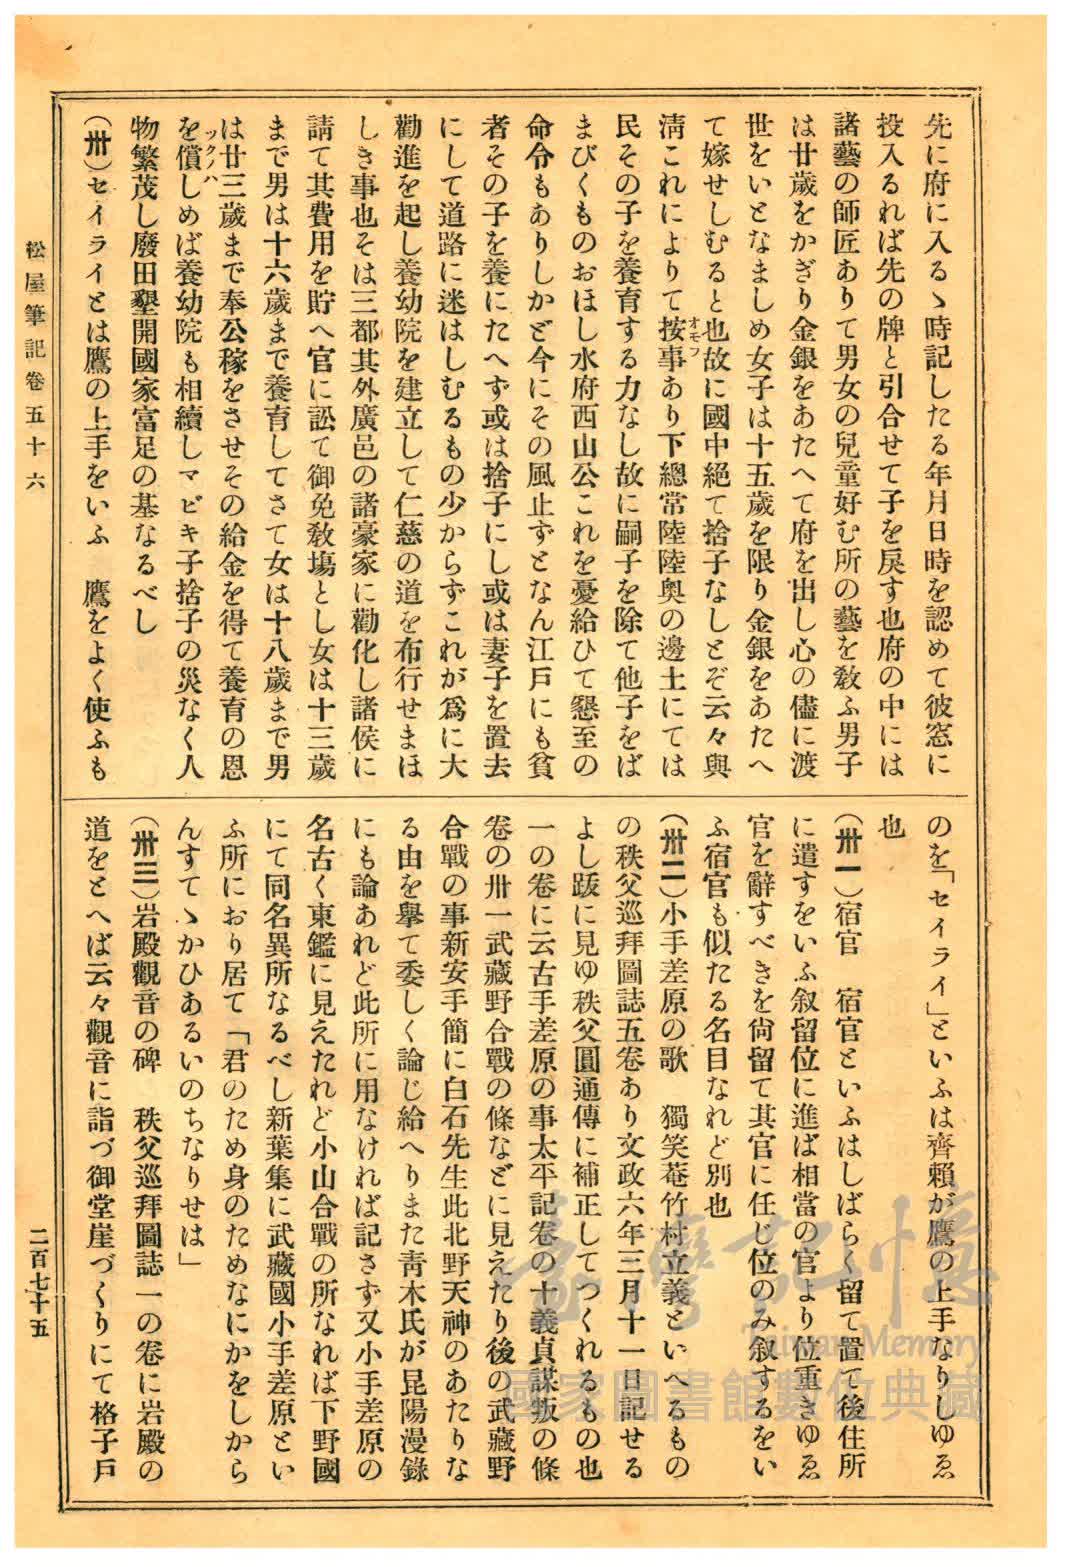 先に府に入るゝ時記したる年月日時を認めて彼窓に
投入るれば先の牌と引合せて子を戻す也府の中には
諸藝の師匠ありて男女の兒童好む所の藝を敎ふ男子
は廿歲をかぎり金銀をあたへて府を出し心の儘に渡
世をいとなましめ女子は十五歲を限り金銀をあたへ
て嫁せしむると也故に國中絕て捨子なしとぞ云々與
淸これによりて按事あり下總常陸陸奥の邊土にては
オモフ
民その子を養育する力なし故に嗣子を除て他子をば
まびくものおほし水府西山公これを憂給ひて懇至の
命令もありしかど今にその風止ずとなん江戶にも貧
者その子を養にたへず或は捨子にし或は妻子を置去
にして道路に迷はしむるもの少からずこれが爲に大
勸進を起し養幼院を建立して仁慈の道を布行せまほ
しき事也そは三都其外廣邑の諸豪家に勸化し諸侯に
請て其費用を貯へ官に訟て御免敎塲とし女は十三歲
まで男は十六歲まで養育してさて女は十八歲まで男
は廿三歲まで奉公稼をさせその給金を得て養育の恩
を償しめば養幼院も相續しマビキ子捨子の災なく人
ツクノハ
物繁茂し廢田墾開國家富足の基なるべし
(卅)セイライとは鷹の上手をいふ 鷹をよく使ふも
のを「セイライ」といふは齊賴が鷹の上手なりしゆゑ
也
(卅一)宿官 宿官といふはしばらく留て置て後住所
に遣すをいふ叙留位に進ば相當の官より位重きゆゑ
官を辭すべきを尙留て其官に任じ位のみ叙するをい
ふ宿官も似たる名目なれど別也
(卅二)小手差原の歌 獨笑菴竹村立義といへるもの
の秩父巡拜圖誌五卷あり文政六年三月十一日記せる
よし跋に見ゆ秩父圓通傳に補正してつくれるもの也
一の卷に云古手差原の事太平記卷の十義貞謀叛の條
卷の卅一武藏野合戰の條などに見えたり後の武藏野
合戰の事新安手簡に白石先生此北野天神のあたりな
る由を擧て委しく論じ給へりまた靑木氏が昆陽漫錄
にも論あれど此所に用なければ記さず又小手差原の
名古く東鑑に見えたれど小山合戰の所なれば下野國
にて同名異所なるべし新葉集に武藏國小手差原とい
ふ所におり居て「君のため身のためなにかをしから
んすてゝかひあるいのちなりせは」
(卅三)岩殿觀音の碑 秩父巡拜圖誌一の卷に岩殿の
道をとへば云々觀音に詣づ御堂崖づくりにて格子戶
松屋筆記卷五十六
二百七十五
臺灣記憶
Taiwan Memory
國家圖書館數位典藏